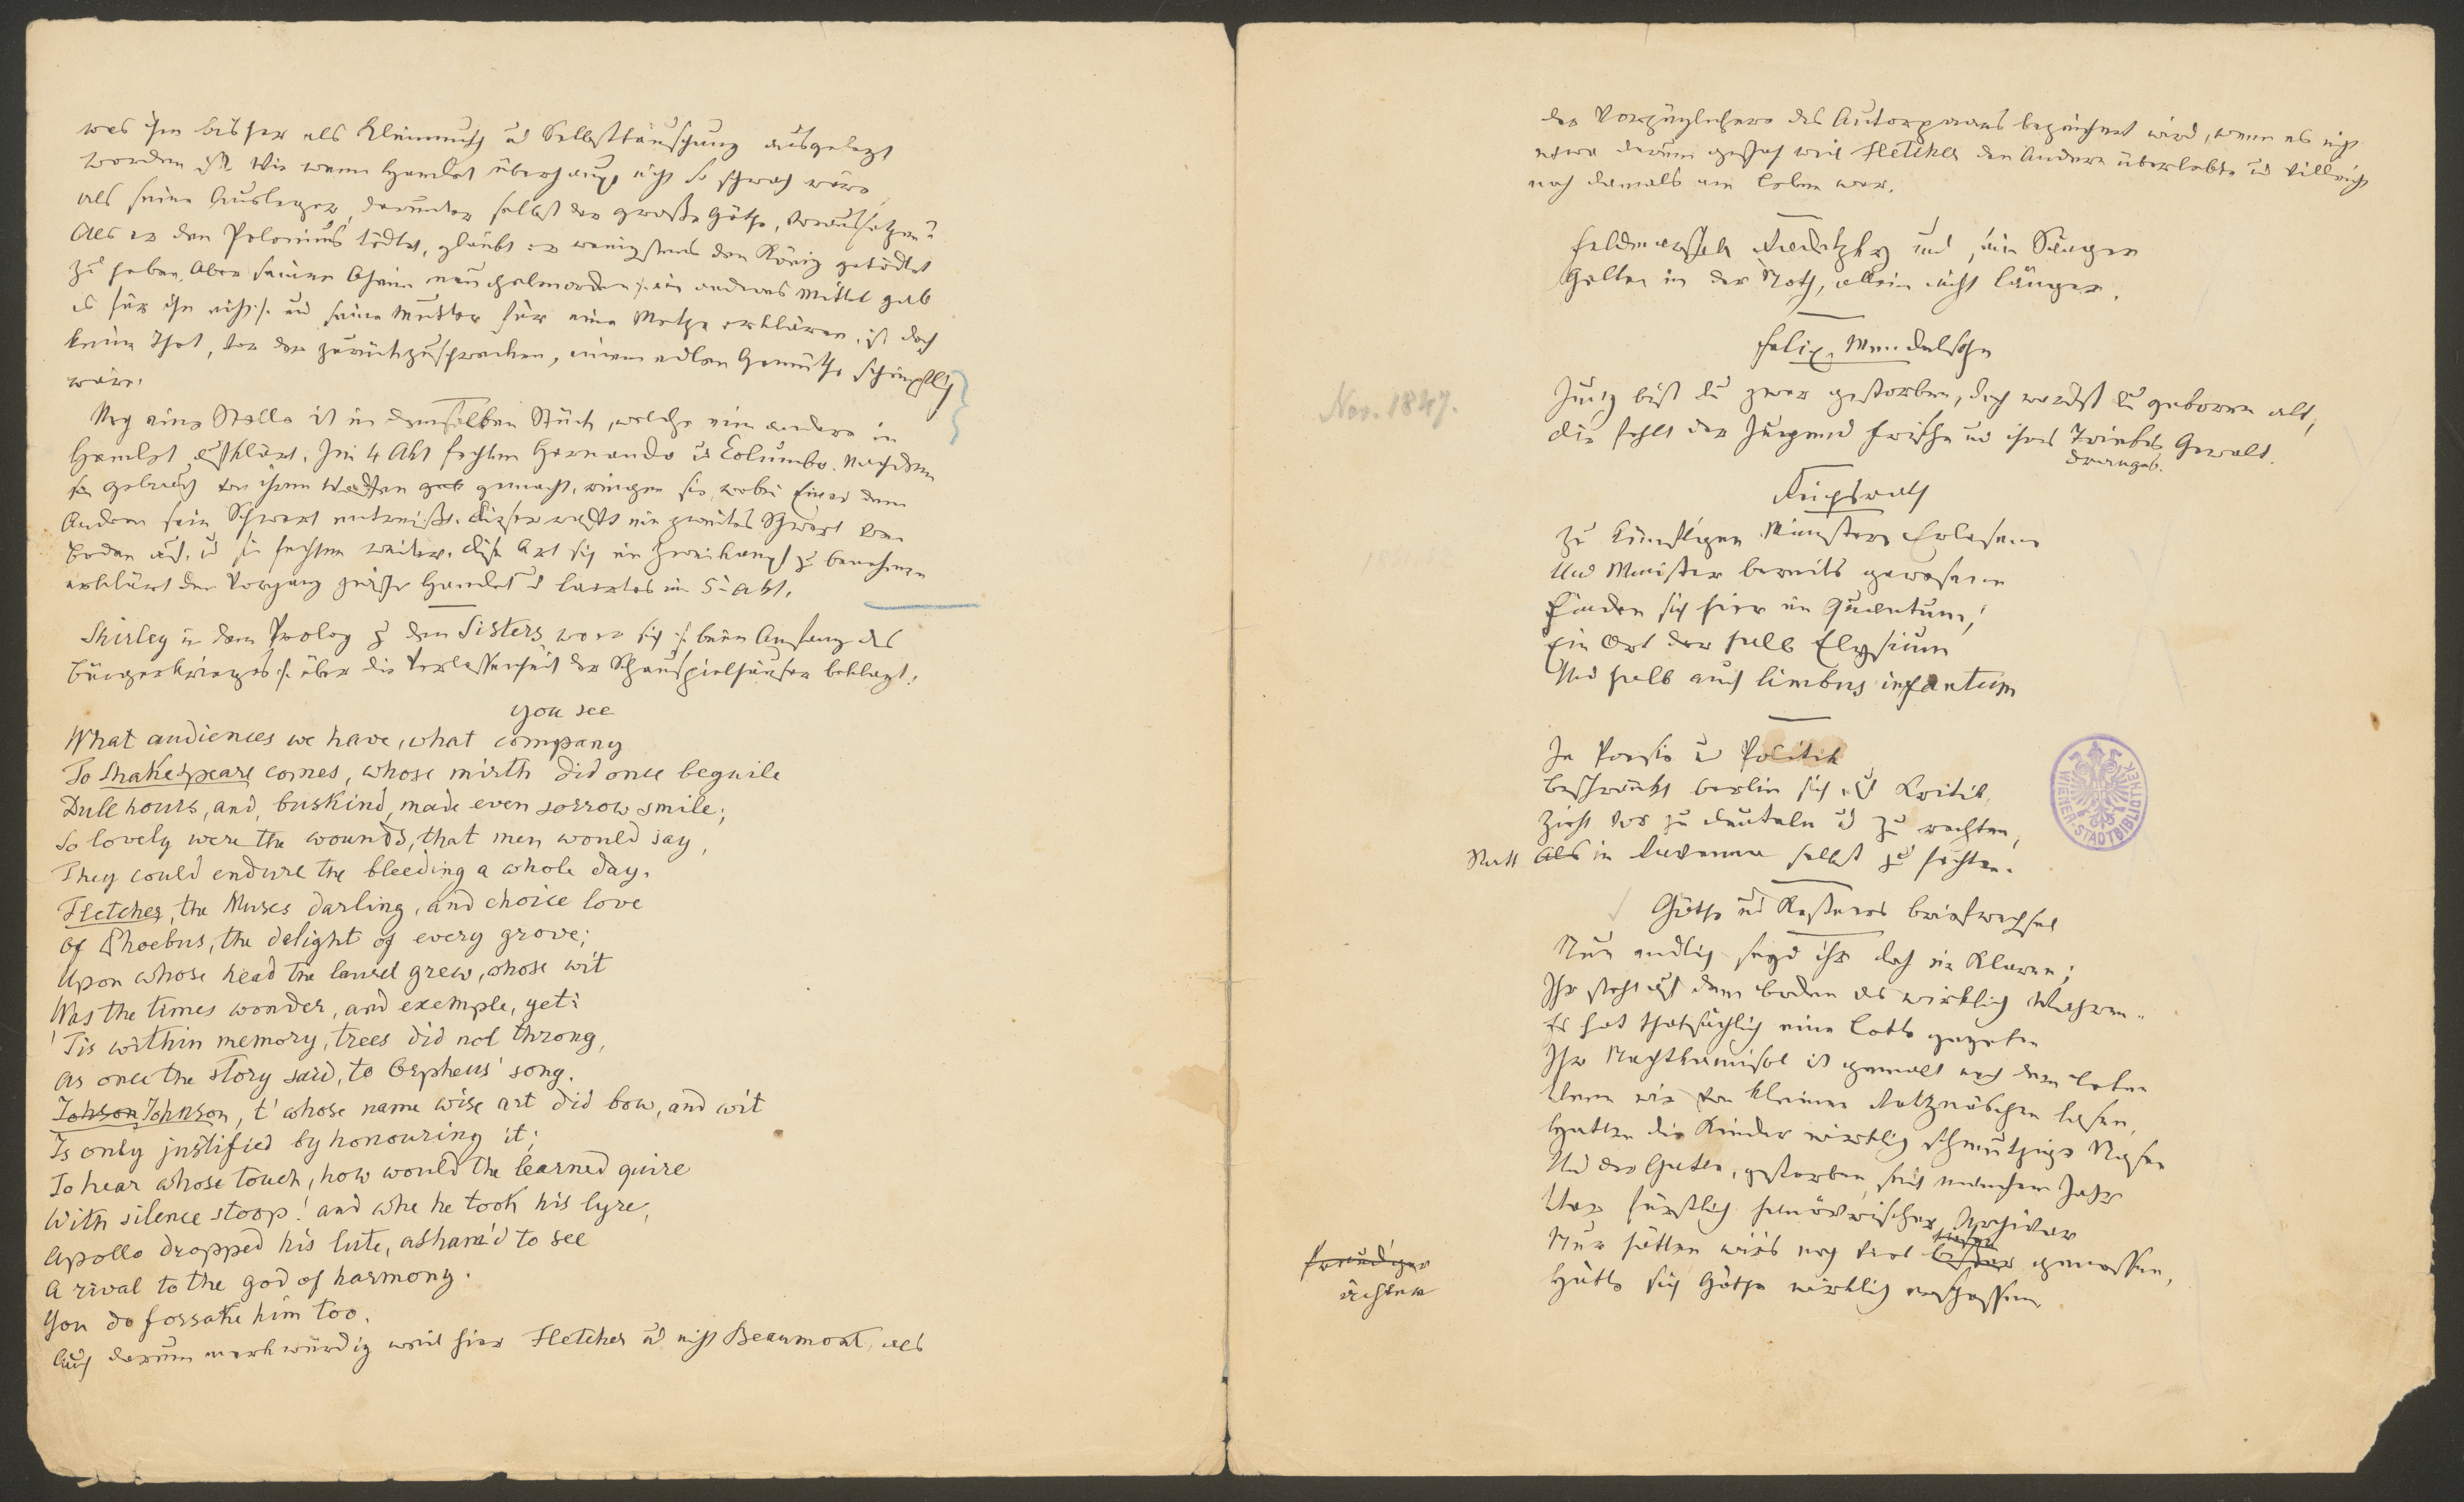 was ihm bisher als Kleinmuth ud Selbsttäuschung ausgelegt
worden ist. Wie wenn Hamlet überhaupt nicht so schwach wäre,
als seine Ausleger, darunter selbst der große Göthe, voraussetzen?
Als er den Polonius tödtet, glaubt er wenigstens den König getödtet
zu haben. Aber seinen Oheim meuchelmorden :/: ein anderes Mittel gab
es für ihn nicht :/: und seine Mutter für eine Metze erklären, ist doch
keine That, vor der zurückzuschrecken, einem edlen Gemüthe schimpflich
wäre.
Noch eine Stelle ist in demselben Stück, welche eine andere in
Hamlet aufklärt. Im 4 Akt fechten Hernando ud Columbo. Nachdem
sie Gebrauch von ihren Waffen gab gemacht, ringen sie, wobei Einer dem
Andern sein Schwert entreißt. Dieser rafft ein zweites Schwert vom
Boden auf, ud sie fechten weiter. Diese Art sich im Zweikampf zu benehmen
erklärt den Vorgang zwischen Hamlet ud Laertes im 5t Akt.
Shirley in dem Prolog zu den Sisters, wo er sich :/: beim Anfang des
Bürgerkrieges :/: über die Verlassenheit der Schauspielhäuser beklagt:
you see
What audiences we have, what company
To Shakespeare comes, whose mirth did once beguile
Dull hours, and, buskind, made even sorrow smile;
So lovely were the wounds, that men would say,
They could endure the bleeding a whole day.
Fletcher, the Muses darling, and choice love
Of Phoebus, the delight of every grove;
Upon whose head the laurel grew, whose wit
Was the times wonder, and exemple, yet:
'Tis within memory, trees did not throng,
As once the story said, to Orpheus' song.
Johson Johnson, t' whose name wise art did bow, and wit
Is only justified by honouring it;
To hear whose touch, how would the learned quire
With silence stoop! and whe he took his lyre,
Apollo dropped his lute, asham'd to see
A rival to the god of harmony.
You do forsake him too.
Auch darum merkwürdig weil hier Fletcher ud nicht Beaumont, als
der Vorzüglichere des Autorpaares bezeichnet wird, wenn es nicht
etwa darum geschah weil Fletcher den Andern überlebte ud villeicht
noch damals am Leben war.
Feldmarschall Radetzky und ein Sänger
Gelten in der Noth, allein nicht länger.
Felix Mendelsohn
Nov. 1847.
Jung bist du zwar gestorben, doch wardst du geboren alt,
Dir fehlt der Jugend Frische und ihres Triebes Gewalt.
Dranges.
Reichsrath
Zu künftigen Ministern Erlesene
Und Minister bereits gewesene
Finden sich hier im Quantum,
Ein Ort der halb Elysium
Und halb auch limbus infantum
In Poesie ud Politik
Beschränkt Berlin sich auf Kritik,
Zieht vor zu deuteln ud zu rechten,
Statt Als in selbst zu fechten.
Göthe ud Kestners Briefwechsel
Nun endlich seyd ihr doch im Klaren;
Ihr steht auf dem Boden des wirklich Wahren.
Es hat thatsächlich eine Lotte gegeben
Ihr Nachtkamisol ist gemalt nach dem Leben
Wenn wir von kleinen Rotznäschen lasen,
Hatten die Kinder wirklich schmutzige Nasen
Und der Gatte, gestorben seit manchem Jahr
War fürstlich hannövrischer Archivar
Nur hätten wirs noch viel besser genossen,
freudiger
ächter
Hätte sich Göthe wirklich erschossen
WIENER STADTBIBLIOTHEK